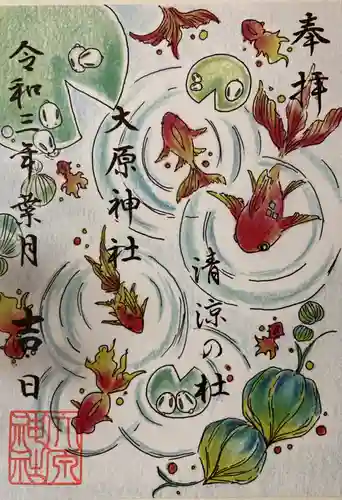 奉拝
清涼の杜
大原神社
令和三年葉月 吉日
大原神社